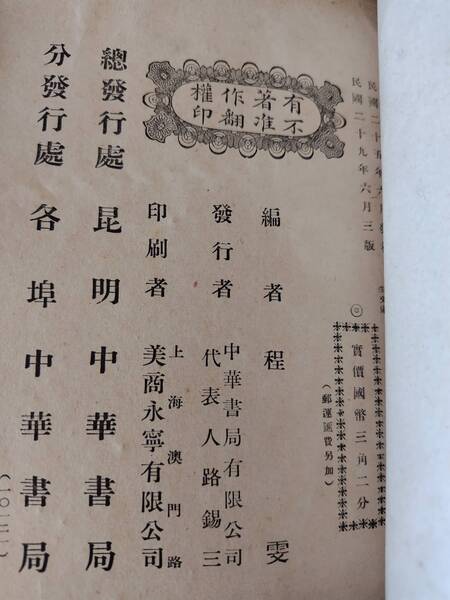 民國二十五年
民國二十九年六月三版
◎
實價國幣三角二分
(郵運匯費另加)
有著作權
不准翻印
編者 程雯
發行者 中華書局有限公司
代表人路錫三
印刷者 上海澳門路
美商永寧有限公司
總發行處 昆明中華書局
分發行處 各埠中華書局